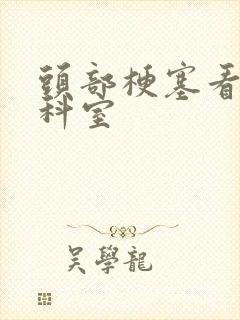 頭部梗塞看
科室
吳學龍